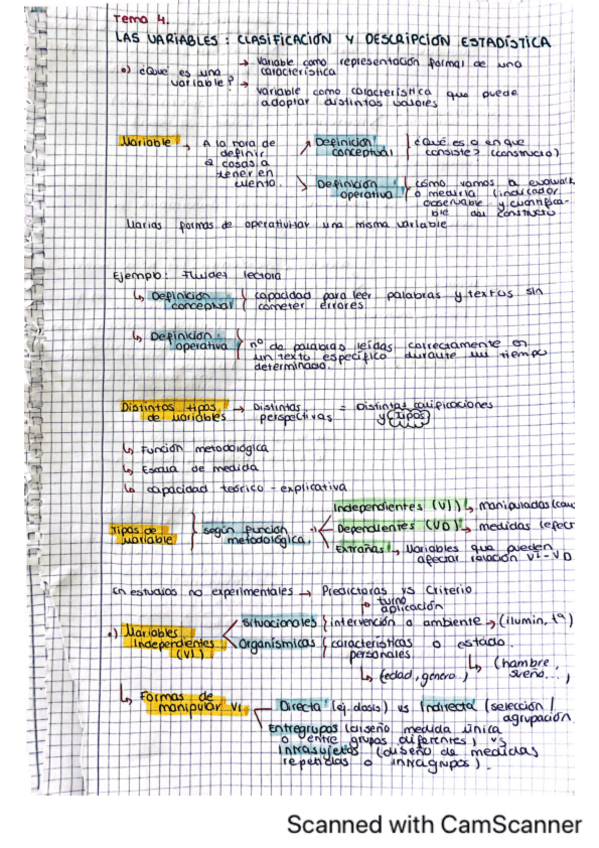 Tema 4.
LAS VARIABLES : CLASIFICACIÓN Y DESCRIPCIÓN ESTADÍSTICA
•) ¿Qué es una variable? → Variable como representación formal de una característica
→ variable como característica que puede adoptar distintos valores
Variable → A la hora de definir 2 cosas a tener en cuenta
Definición conceptual ¿Qué es o en que consiste? (constructo)
Definición operativa cómo vamos a evaluar o medirla (indicador observable y cuantificable del constructo
Varias formas de operativizar una misma variable
Ejemplo: Fluidez lectora
↳ Definición conceptual } capacidad para leer palabras y textos sin cometer errores
↳ Definición operativa } nº de palabras leídas correctamente en un texto específico durante un tiempo determinado.
Distintos tipos de variables → Distintas perspectivas = Distintas clasificaciones y tipos
↳ Función metodológica
↳ Escala de medida
↳ capacidad teórico - explicativa
Tipos de variable } según función metodológica.
Independientes (VI) ↳ manipuladas (cau
Dependientes (VD) ↳ medidas (efect
Extrañas ↳ Variables que pueden afectar relación VI-VD
En estudios no experimentales → Predictoras vs Criterio
turno aplicación
•) Variables Independientes (VI)
Situacionales { intervención o ambiente → (ilumin, tª)
Organísmicas { características personales o estado.
↳ (edad, género) ↳ (hambre, sueño...)
↳ Formas de manipular VI
Directa (ej. dosis) vs Indirecta (selección / agrupación
Entregrupos (diseño medida única o entre grupos diferentes) vs
Intrasujetos (diseño de medidas repetidas o intragrupos).
Scanned with CamScanner